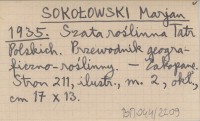 SOKOŁOWSKI Marjan
1935. Szata roślinna Tatr
Polskich. Przewodnik geogra-
ficzno-roślinny. — Zakopane.
Stron 211, ilustr., m. 2, okł.,
cm 17 x 13.